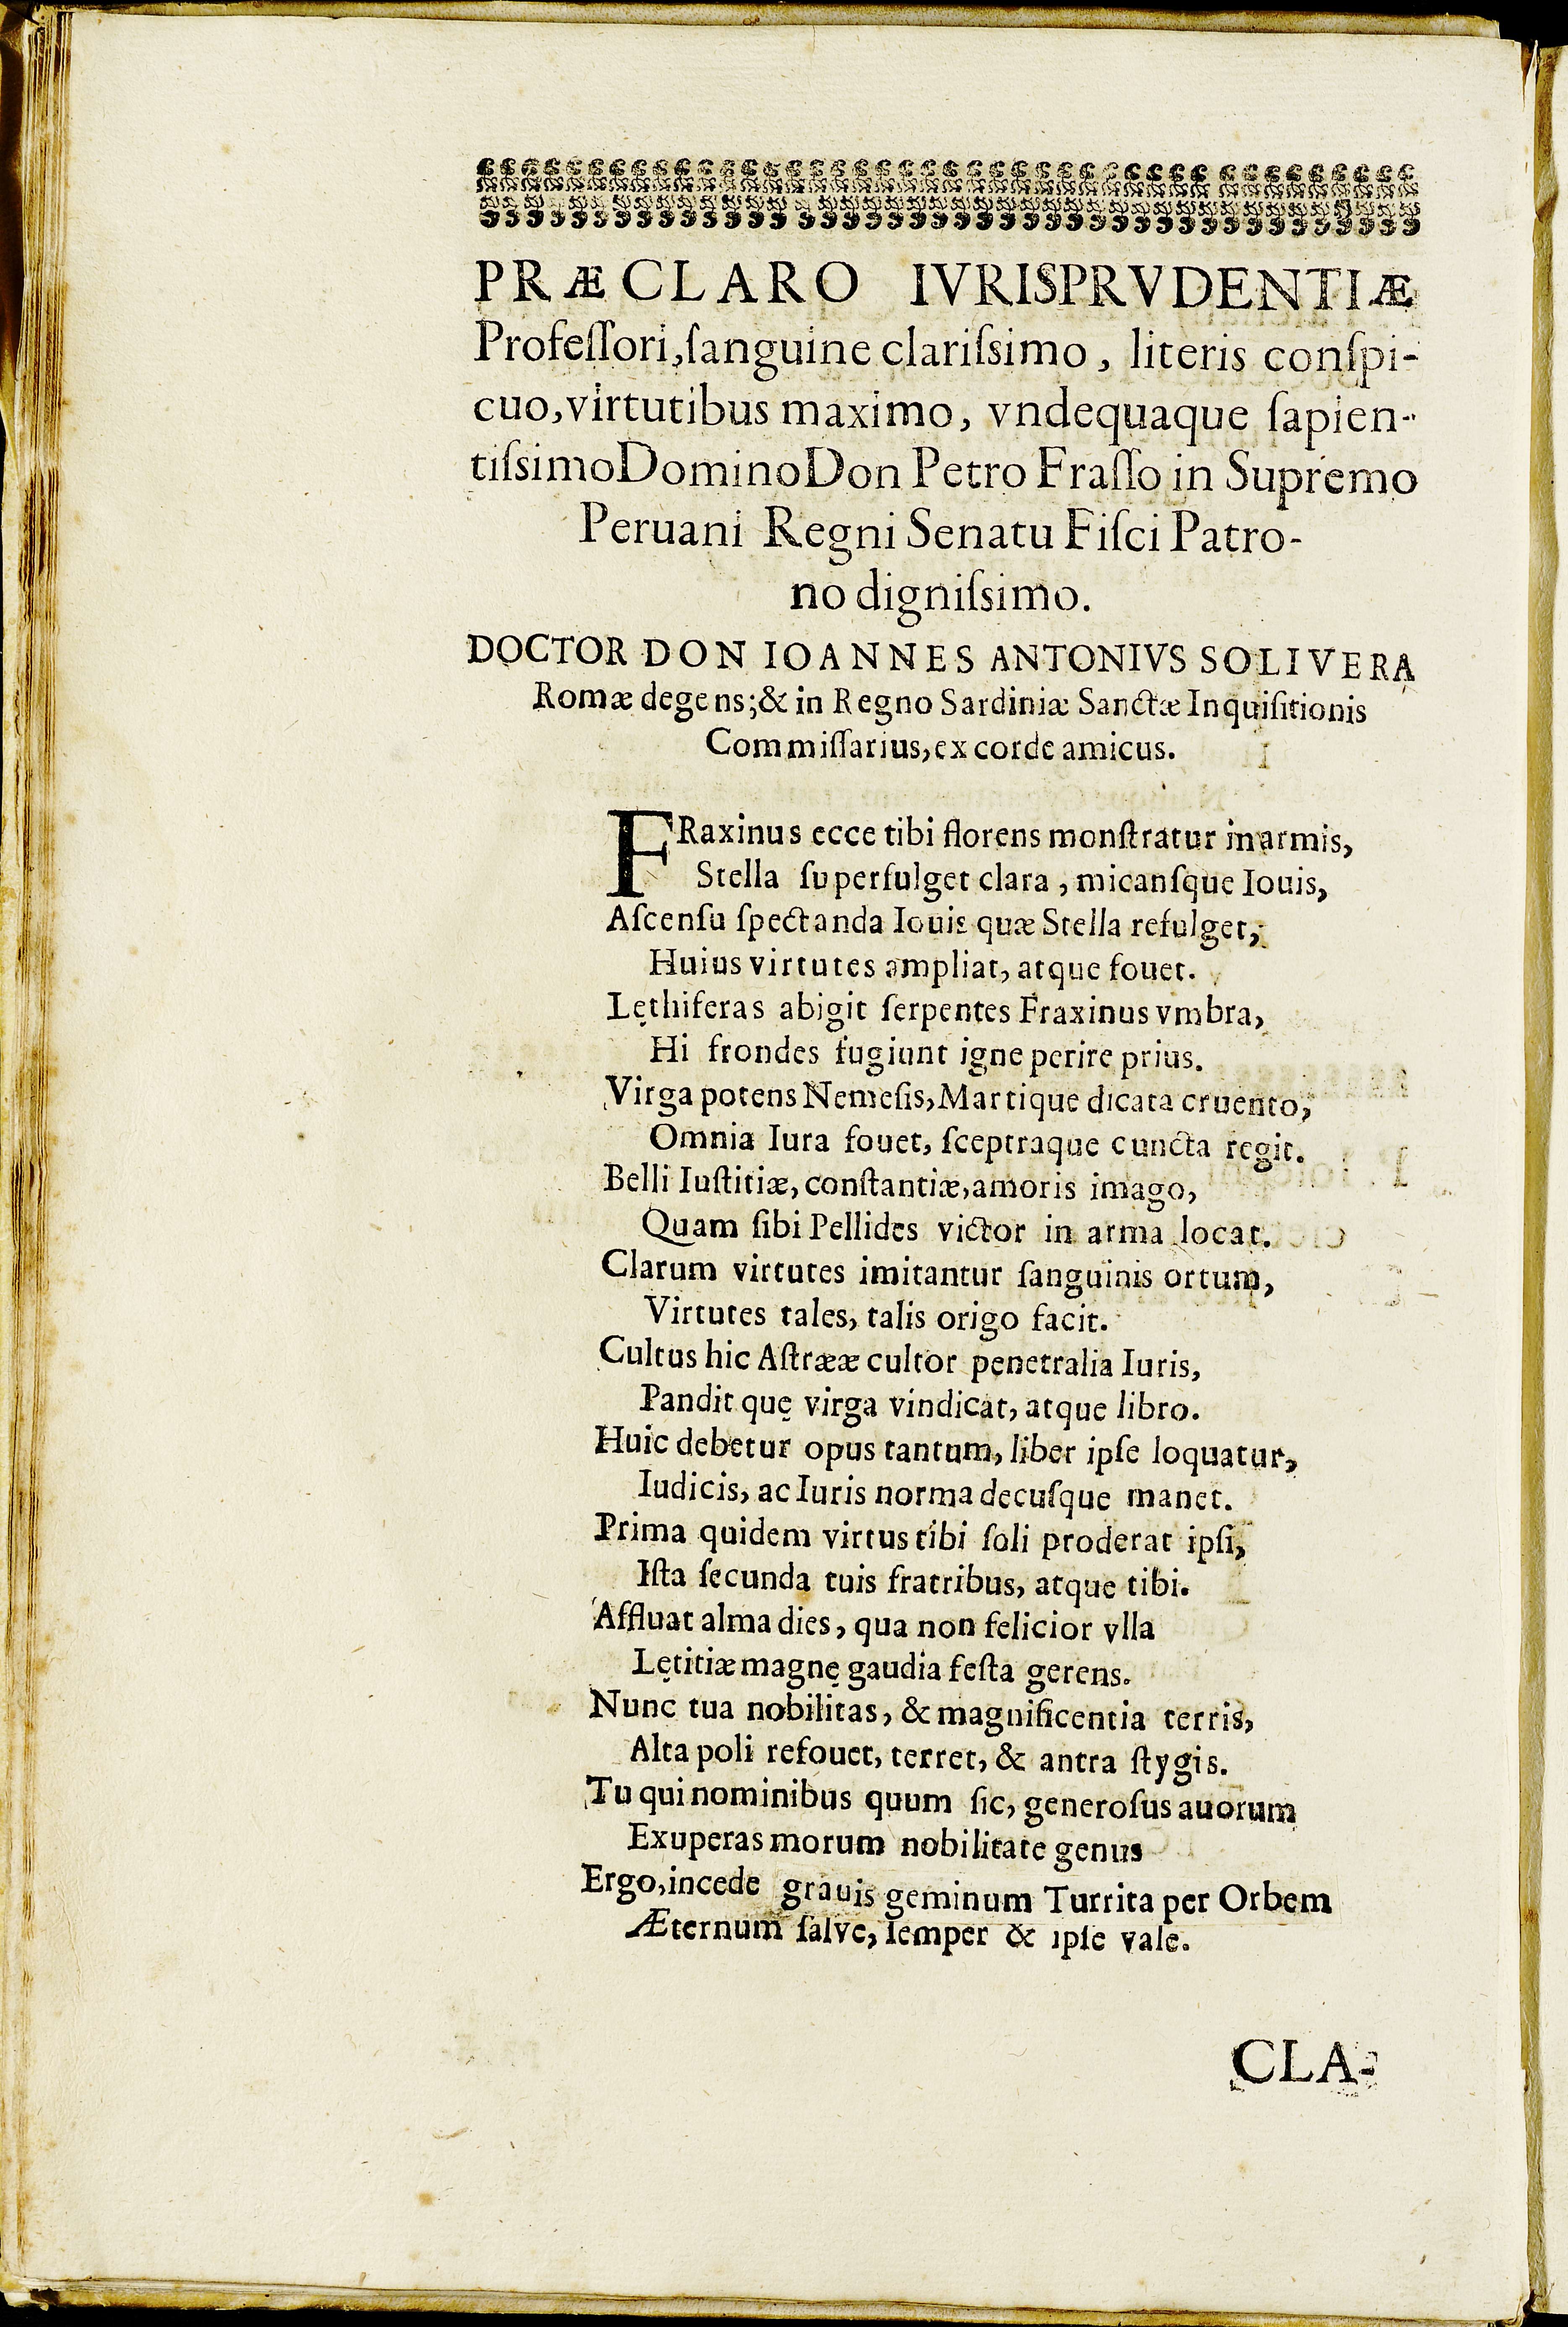 PRÆCLARO IVRISPRVDENTIÆ
Profeſſori, ſanguine clariſsimo, literis conſpi-
cuo, virtutibus maximo, vndequaque ſapien-
tiſsimo Domino Don Petro Fraſſo in Supremo
Peruani Regni Senatu Fiſci Patro-
no digniſsimo.
DOCTOR DON IOANNES ANTONIVS SOLIVERA
Romæ degens; & in Regno Sardiniæ Sanctæ Inquiſitionis
Commiſſarius, ex corde amicus.
FRaxinus ecce tibi florens monſtratur in armis,
Stella ſuperfulget clara, micanſque Iouis,
Aſcenſu ſpectanda Iouis quæ Stella refulget,
Huius virtutes ampliat, atque fouet.
Lęthiferas abigit ſerpentes Fraxinus vmbra,
Hi frondes fugiunt igne perire prius.
Virga potens Nemeſis, Martique dicata cruento,
Omnia Iura fouet, ſceptraque cuncta regit.
Belli Iuſtitiæ, conſtantiæ, amoris imago,
Quam ſibi Pellides victor in arma locat.
Clarum virtutes imitantur ſanguinis ortum,
Virtutes tales, talis origo facit.
Cultus hic Aſtrææ cultor penetralia Iuris,
Pandit quę virga vindicat, atque libro.
Huic debetur opus tantum, liber ipſe loquatur,
Iudicis, ac Iuris norma decuſque manet.
Prima quidem virtus tibi ſoli proderat ipſi,
Iſta ſecunda tuis fratribus, atque tibi.
Affluat alma dies, qua non felicior vlla
Lętitiæ magnę gaudia feſta gerens.
Nunc tua nobilitas, & magnificentia terris,
Alta poli refouet, terret, & antra ſtygis.
Tu qui nominibus quum ſic, generoſus auorum
Exuperas morum nobilitate genus
Ergo, incede grauis geminum Turrita per Orbem
Æternum ſalve, ſemper & ipſe vale.
CLA-